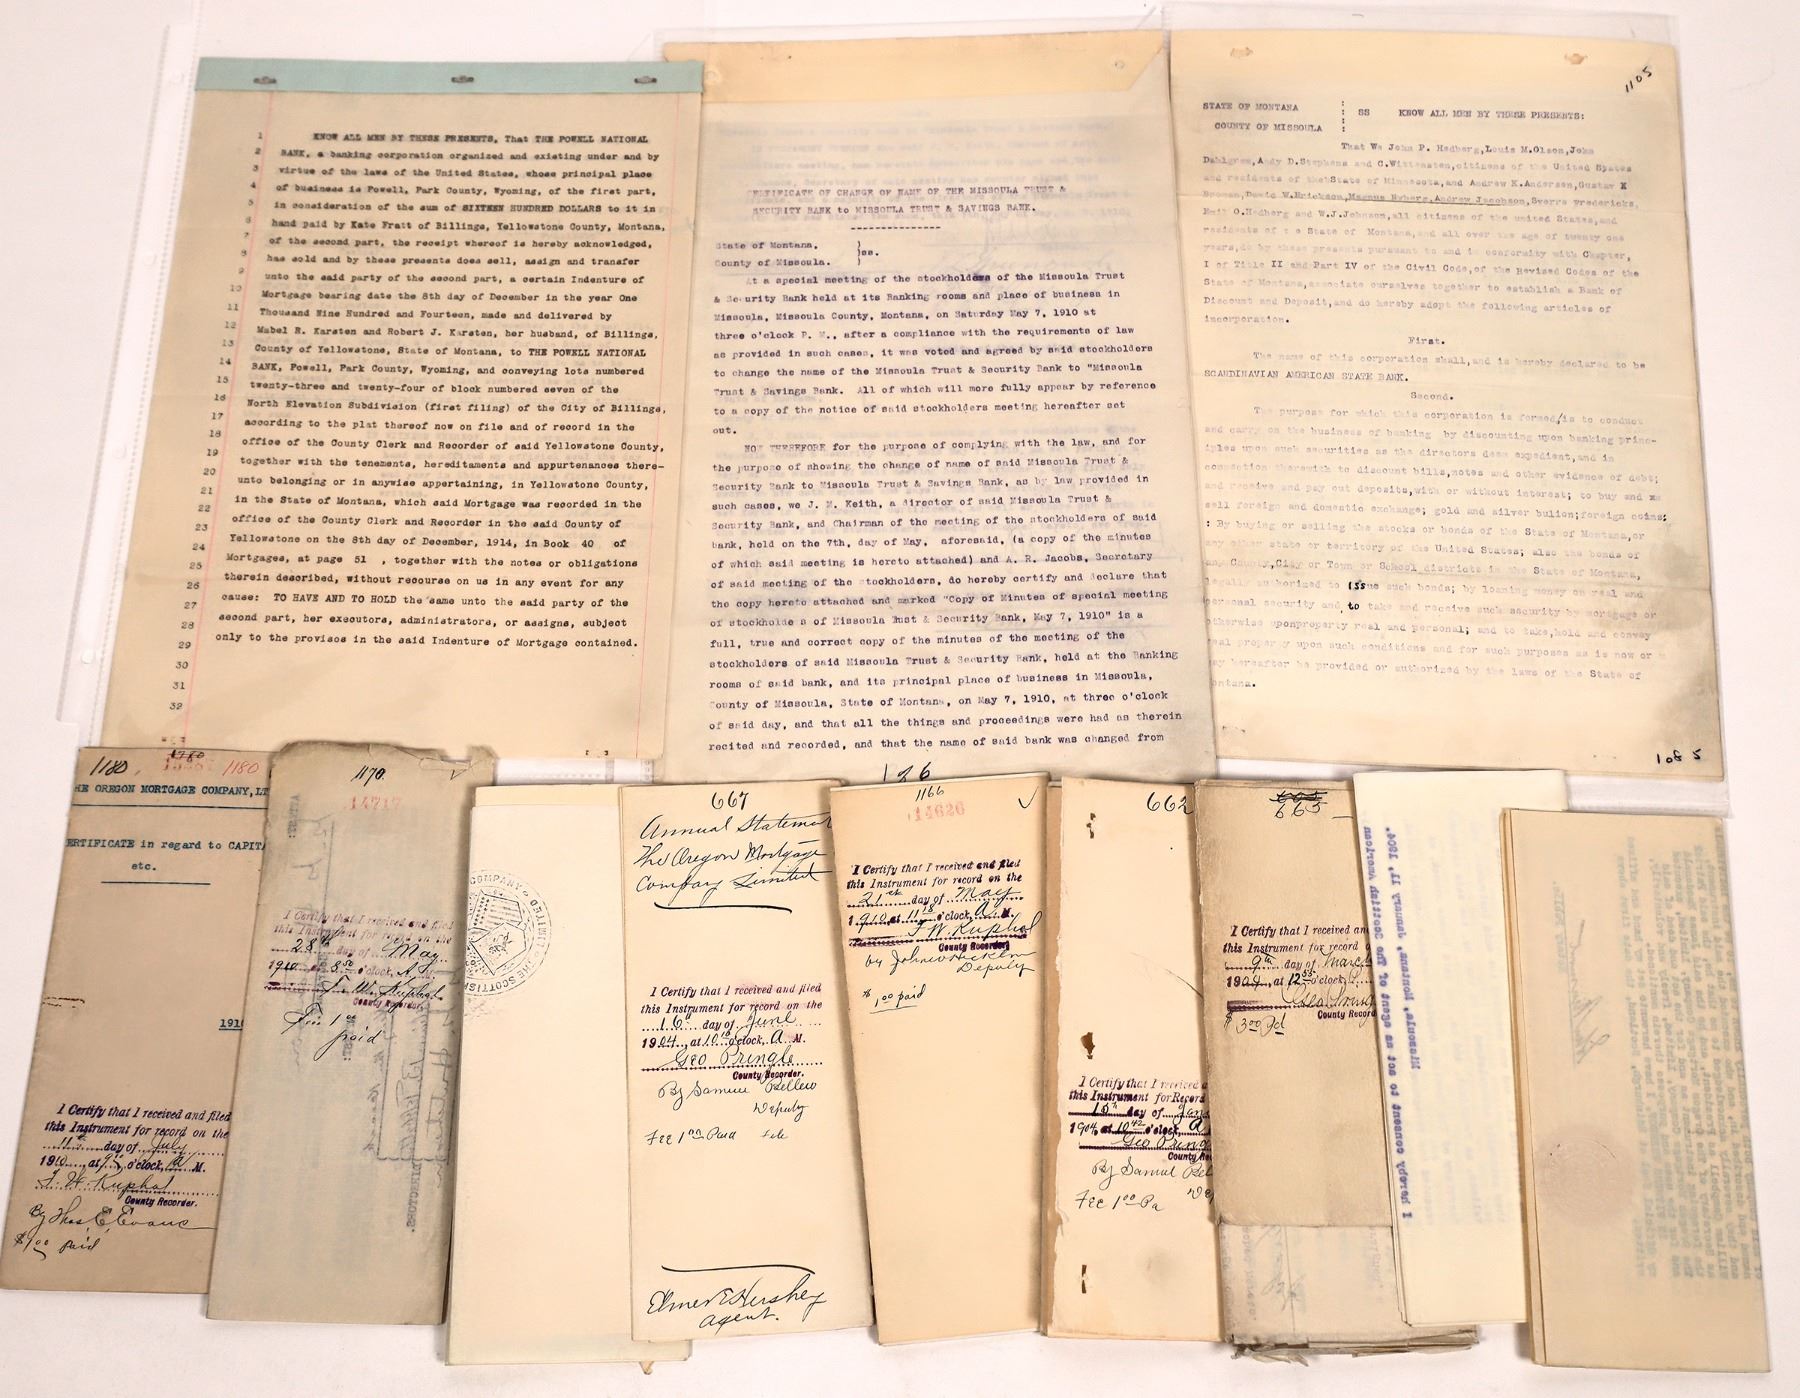 1 KNOW ALL MEN BY THESE PRESENTS, That THE POWELL NATIONAL
2 BANK, a banking corporation organized and existing under and by
3 virtue of the laws of the United States, whose principal place
4 of business is Powell, Park County, Wyoming, of the first part,
5 in consideration of the sum of SIXTEEN HUNDRED DOLLARS to it in
6 hand paid by Kate Fratt of Billings, Yellowstone County, Montana,
7 of the second part, the receipt whereof is hereby acknowledged,
8 has sold and by these presents does sell, assign and transfer
9 unto the said party of the second part, a certain Indenture of
10 Mortgage bearing date the 8th day of December in the year One
11 Thousand Nine Hundred and Fourteen, made and delivered by
12 Mabel R. Karsten and Robert J. Karsten, her husband, of Billings,
13 County of Yellowstone, State of Montana, to THE POWELL NATIONAL
14 BANK, Powell, Park County, Wyoming, and conveying lots numbered
15 twenty-three and twenty-four of block numbered seven of the
16 North Elevation Subdivision (first filing) of the City of Billings,
17 according to the plat thereof now on file and of record in the
18 office of the County Clerk and Recorder of said Yellowstone County,
19 together with the tenements, hereditaments and appurtenances there-
20 unto belonging or in anywise appertaining, in Yellowstone County,
21 in the State of Montana, which said Mortgage was recorded in the
22 office of the County Clerk and Recorder in the said County of
23 Yellowstone on the 8th day of December, 1914, in Book 40 of
24 Mortgages, at page 51 , together with the notes or obligations
25 therein described, without recourse on us in any event for any
26 cause: TO HAVE AND TO HOLD the same unto the said party of the
27 second part, her executors, administrators, or assigns, subject
28 only to the provisos in the said Indenture of Mortgage contained.
29
30
31
32
CERTIFICATE OF CHANGE OF NAME OF THE MISSOULA TRUST &
SECURITY BANK to MISSOULA TRUST & SAVINGS BANK.
State of Montana. }
County of Missoula. }ss.
At a special meeting of the stockholders of the Missoula Trust
& Security Bank held at its Banking rooms and place of business in
Missoula, Missoula County, Montana, on Saturday May 7, 1910 at
three o'clock P. M., after a compliance with the requirements of law
as provided in such cases, it was voted and agreed by said stockholders
to change the name of the Missoula Trust & Security Bank to "Missoula
Trust & Savings Bank. All of which will more fully appear by reference
to a copy of the notice of said stockholders meeting hereafter set
out.
NOW THEREFORE for the purpose of complying with the law, and for
the purpose of showing the change of name of said Missoula Trust &
Security Bank to Missoula Trust & Savings Bank, as by law provided in
such cases, we J. M. Keith, a director of said Missoula Trust &
Security Bank, and Chairman of the meeting of the stockholders of said
bank, held on the 7th, day of May, aforesaid, (a copy of the minutes
of which said meeting is hereto attached) and A. R. Jacobs, Secretary
of said meeting of the stockholders, do hereby certify and declare that
the copy hereto attached and marked "Copy of Minutes of special meeting
of stockholde s of Missoula Trust & Security Bank, May 7, 1910" is a
full, true and correct copy of the minutes of the meeting of the
stockholders of said Missoula Trust & Security Bank, held at the Banking
rooms of said bank, and its principal place of business in Missoula,
County of Missoula, State of Montana, on May 7, 1910, at three o'clock
of said day, and that all the things and proceedings were had as therein
recited and recorded, and that the name of said bank was changed from
126
1105
STATE OF MONTANA : SS KNOW ALL MEN BY THESE PRESENTS:
COUNTY OF MISSOULA
That We John P. Hedberg,Louis M.Olson,John
Dahlgren,Andy D.Stephens and C.Wittensten,citizens of the United States
and residents of the State of Minnesota,and Andrew K.Anderson,Gustav K
David W.Erickson,Magnus Hyberg,Andrew Jacobson,Sverre Fredericks,
Emil O.Hedberg and W.J.Johnson,all citizens of the united States,and
residents of the State of Montana,and all over the age of twenty one
years,do by these presents pursuant to and in conformity with Chapter,
I of Title II and Part IV of the Civil Code,of the Revised Codes of the
State of Montana,associate ourselves together to establish a Bank of
Discount and Deposit,and do hereby adopt the following articles of
incorporation.
First.
The name of this corporation shall,and is hereby declared to be
SCANDINAVIAN AMERICAN STATE BANK.
Second.
The purpose for which this corporation is formed/is to conduct
and carry on the business of banking by discounting upon banking princ-
iples upon such securities as the directors deem expedient,and in
connection therewith to discount bills,notes and other evidence of debt;
and receive and pay out deposits,with or without interest; to buy and
sell foreign and domestic exchange; gold and silver bulion;foreign coins;
: By buying or selling the stocks or bonds of the State of Montana,or
any other state or territory of the United States; also the bonds of
any County,City or Town or School districts in the State of Montana,
legally authorized to issue such bonds; by loaning money on real and
personal security and to take and receive such security by mortgage or
otherwise uponproperty real and personal; and to take,hold and convey
real property upon such conditions and for such purposes as is now or
may hereafter be provided or authorized by the laws of the State of
ontana.
1180 1180
HE OREGON MORTGAGE COMPANY, LT
ERTIFICATE in regard to CAPITA
etc.
191
I Certify that I received and filed
this Instrument for record on the
11th day of July
1910, at o'clock, A M.
F. W. Kuphal
County Recorder.
By Thos. E. Evans
$1.00 paid
1170
14717
I Certify that I received and filed
this Instrument for record on the
28th day of May
1910 at 8.50 o'clock, A M.
F. W. Kuphal
County Recorder.
Fee 1.00
paid
667
Annual Statement
The Oregon Mortgage
Company Limited
I Certify that I received and filed
this Instrument for record on the
16 day of June
1904, at 10 o'clock, A M.
Geo Pringle
County Recorder.
By Samuel Bellew
Deputy
Fee 1.00 Paid
Elmer E Hershey
Agent.
1166
14626
I Certify that I received and filed
this Instrument for record on the
21st day of May
1910, at 11 o'clock, A M.
F W. Kuphal
County Recorder
Deputy
$1.00 paid
662
I Certify that I received a
this Instrument for Record
15th day of Jan
1904 at 10 42 o'clock, A
Geo Pring
County Re
By Samuel Bel
Fee 1.00 Pa
665
I Certify that I received an
this Instrument for record o
9th day of March
at 12 55 o'clock, P
Geo Pring
County Record
$3.00 Pd
I hereby consent to act as agent of the Scottish American
Missoula, Montana, January 11, 1904.